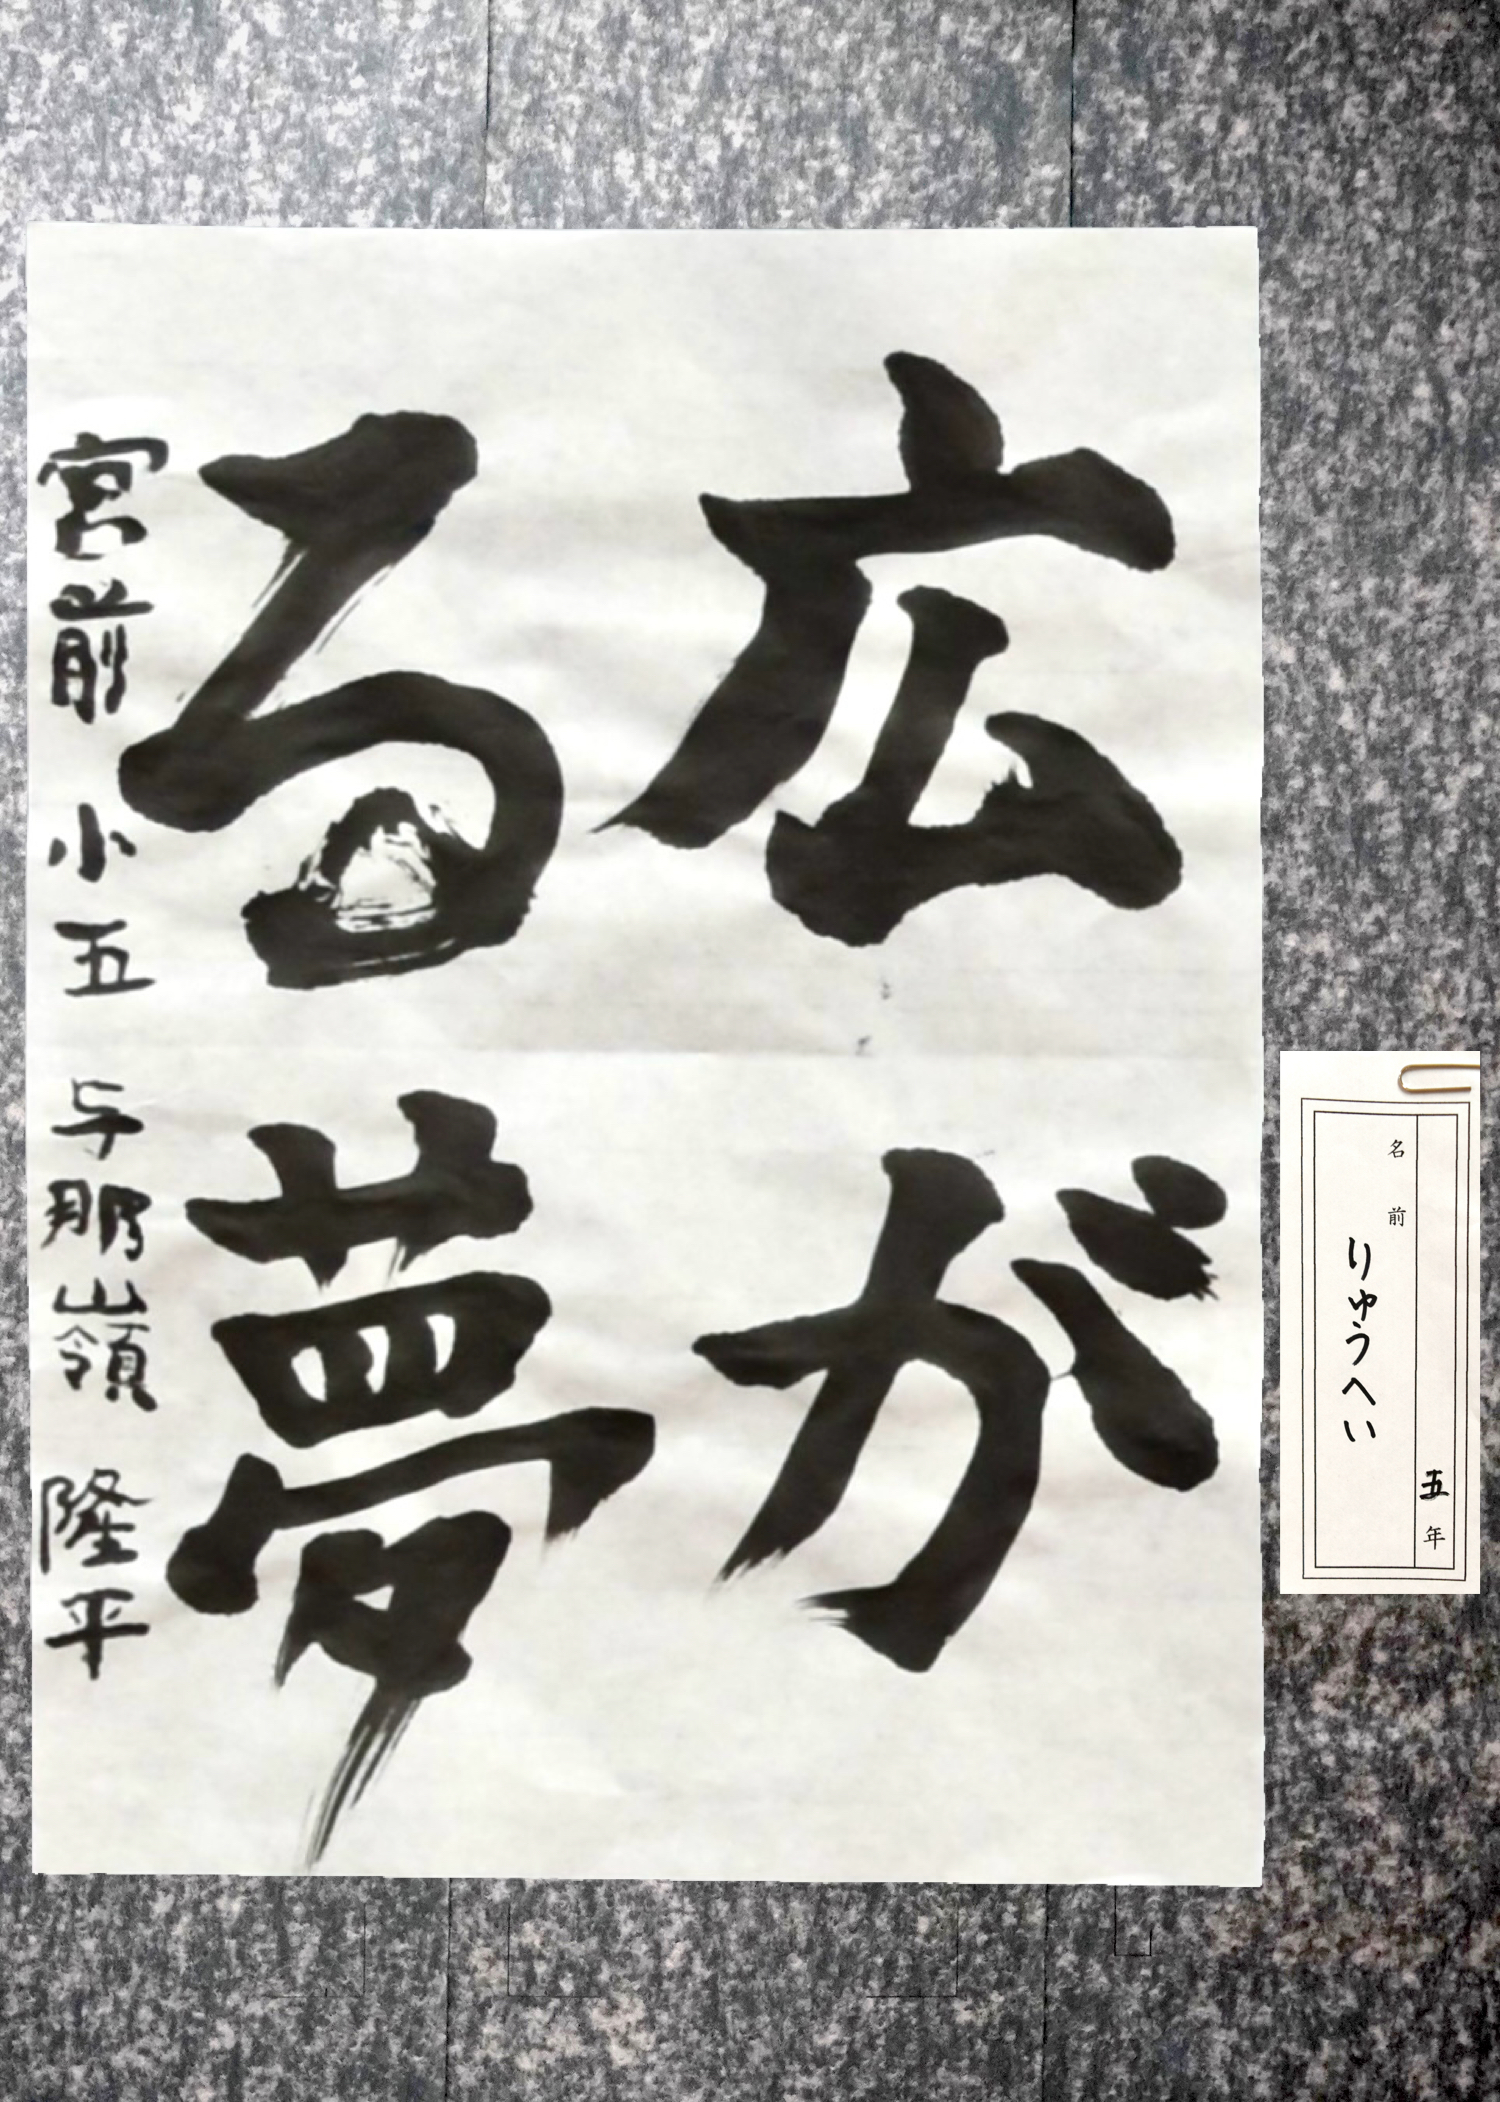 広が
る夢
宮前小五 与那嶺 隆平
五年
名前
りゅうへい